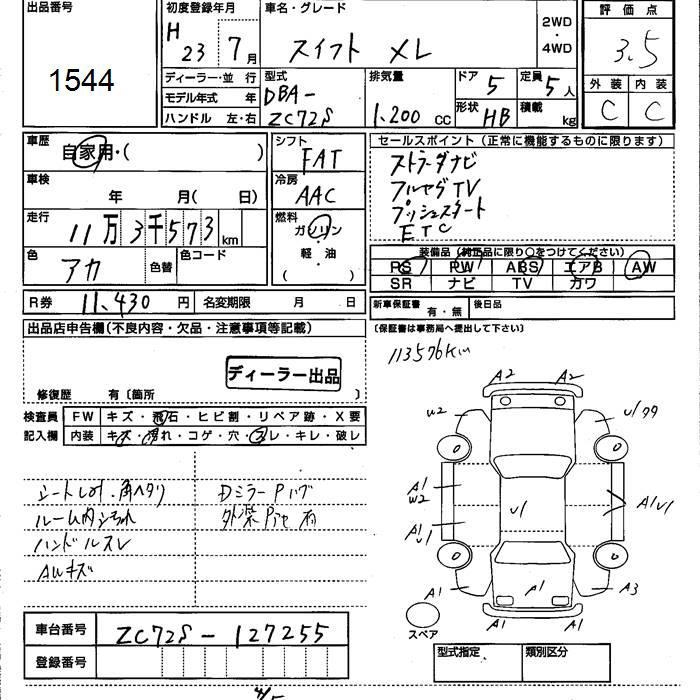 出品番号
1544
初度登録年月
H 23 7月
車名・グレード
スイフト XL
2WD
・
4WD
評価点
3.5
外装 内装
C C
ディーラー・並行
モデル年式 年
ハンドル 左・右
型式
DBA-
ZC72S
排気量
1.200 CC
ドア 5
定員 5人
形状 HB
積載 kg
車歴
自家用・( )
車検
年 月( 日)
走行
11万3千573km
色 アカ 色替 色コード
シフト
FAT
冷房
AAC
燃料
ガソリン
・
軽油
( )
セールスポイント(正常に機能するものに限ります)
ストラーダナビ
フルセグTV
プッシュスタート
ETC
装備品(純正品に限り○をつけてください)
PS PW ABS エアB AW
SR ナビ TV カワ
R券 11,430 円 名変期限 月 日
新車保証書 有・無 後日品
(保証書は事務局へ提出して下さい)
出品店申告欄(不良内容・欠品・注意事項等記載)
ディーラー出品
修復歴 有〔箇所 〕
113576km
検査員 FW キズ・飛石・ヒビ割・リペア跡・X要
記入欄 内装 キズ・汚れ・コゲ・穴・スレ・キレ・破レ
Dミラー Pハゲ
ハンドルスレ
AWキズ
A2 A2
W2
A1
W2
A1
U1
U1
A1U1
A1 A1 A3
A1 A1
スペア
車台番号 ZC72S-127255
登録番号
型式指定 類別区分